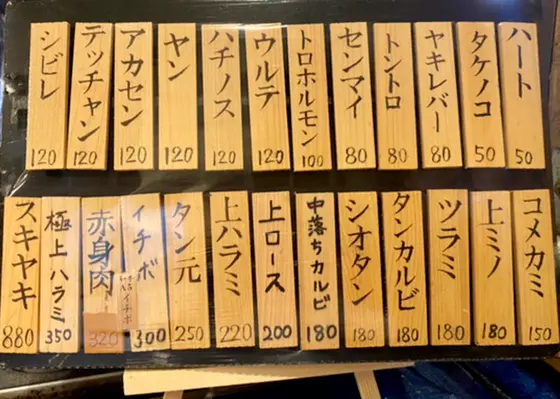 ハート 50
タケノコ 50
ヤキレバー 80
トントロ 80
センマイ 80
トロホルモン 100
ウルテ 120
ハチノス 120
ヤン 120
アカセン 120
テッチャン 120
シビレ 120
コメカミ 150
上ミノ 180
ツラミ 180
タンカルビ 180
シオタン 180
中落ちカルビ 180
上ロース 200
上ハラミ 220
タン元 250
イチボ 300
赤身肉 320
極上ハラミ 350
スキヤキ 880